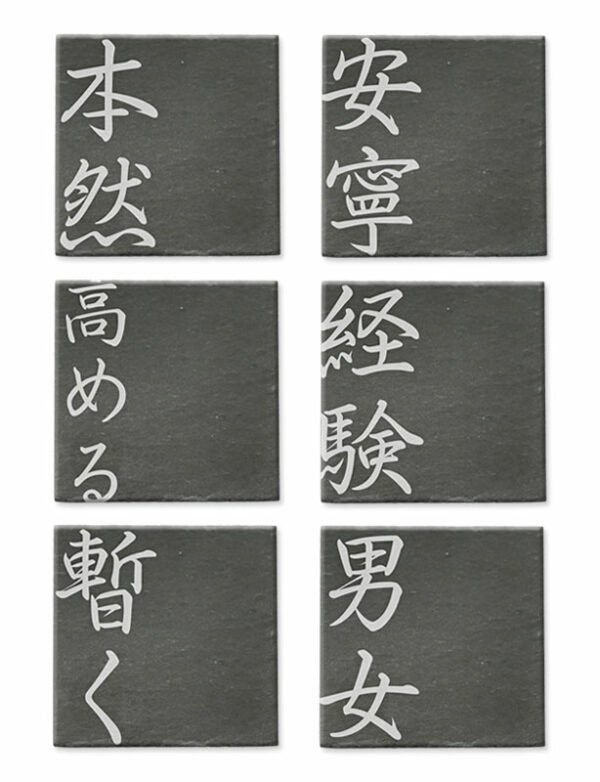 本然
安寧
高める
経験
暫く
男女